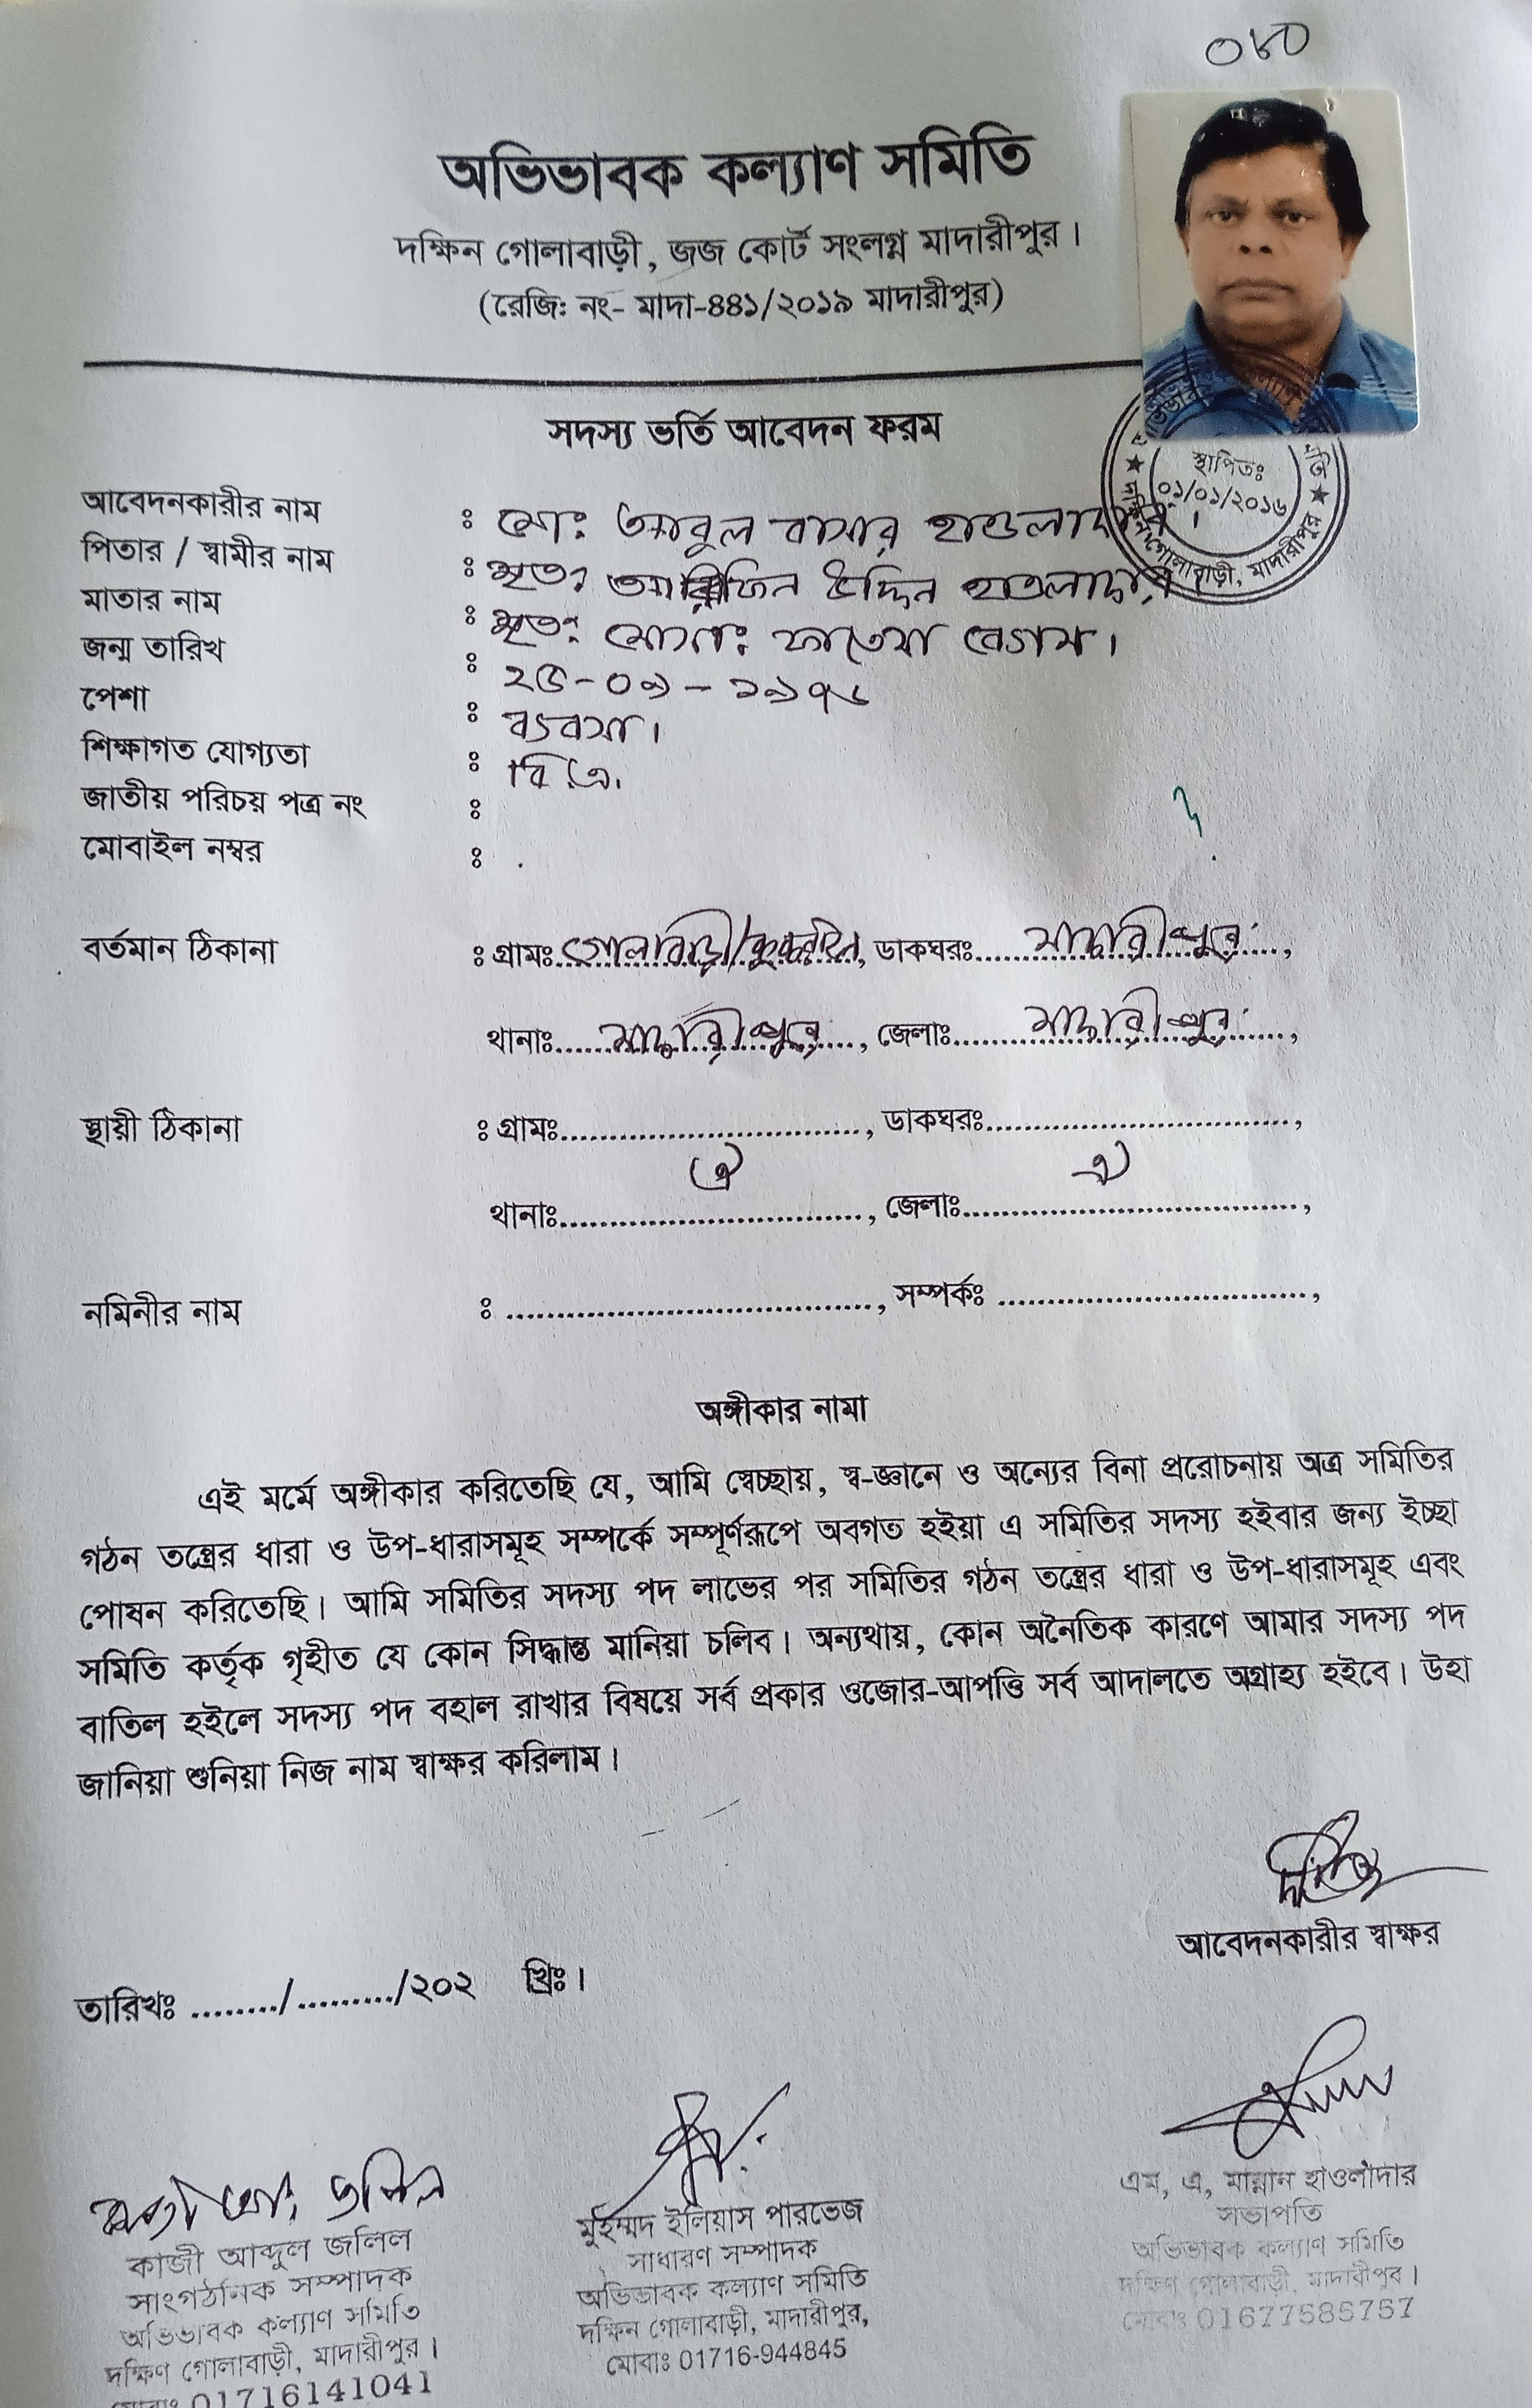 ০৮০
অভিভাবক কল্যাণ সমিতি
দক্ষিন গোলাবাড়ী, জজ কোর্ট সংলগ্ন মাদারীপুর।
(রেজি: নং- মাদা-৪৪১/২০১৯ মাদারীপুর)
সদস্য ভর্তি আবেদন ফরম
স্থাপিতঃ
০১/০১/২০১৬
গোলাবাড়ী, মাদারীপুর
আবেদনকারীর নাম : মোঃ আবুল বাসার হাওলাদার।
পিতার / স্বামীর নাম : মৃতঃ উদ্দিন হাওলাদার।
মাতার নাম : মৃতঃ মোসাঃ ফাতেমা বেগম।
জন্ম তারিখ : ২৫-০৯-১৯৭৮
পেশা : ব্যবসা।
শিক্ষাগত যোগ্যতা : বি.এ.
জাতীয় পরিচয় পত্র নং :
মোবাইল নম্বর :
বর্তমান ঠিকানা : গ্রামঃ গোলাবাড়ী/ , ডাকঘরঃ মাদারীপুর,
থানাঃ মাদারীপুর, জেলাঃ মাদারীপুর,
স্থায়ী ঠিকানা : গ্রামঃ............................, ডাকঘরঃ............................,
ঐ ঐ
থানাঃ............................, জেলাঃ............................,
নমিনীর নাম : ............................, সম্পর্কঃ ............................,
অঙ্গীকার নামা
এই মর্মে অঙ্গীকার করিতেছি যে, আমি স্বেচ্ছায়, স্ব-জ্ঞানে ও অন্যের বিনা প্ররোচনায় অত্র সমিতির
গঠন তন্ত্রের ধারা ও উপ-ধারাসমূহ সম্পর্কে সম্পূর্ণরূপে অবগত হইয়া এ সমিতির সদস্য হইবার জন্য ইচ্ছা
পোষন করিতেছি। আমি সমিতির সদস্য পদ লাভের পর সমিতির গঠন তন্ত্রের ধারা ও উপ-ধারাসমূহ এবং
সমিতি কর্তৃক গৃহীত যে কোন সিদ্ধান্ত মানিয়া চলিব। অন্যথায়, কোন অনৈতিক কারণে আমার সদস্য পদ
বাতিল হইলে সদস্য পদ বহাল রাখার বিষয়ে সর্ব প্রকার ওজোর-আপত্তি সর্ব আদালতে অগ্রাহ্য হইবে। উহা
জানিয়া শুনিয়া নিজ নাম স্বাক্ষর করিলাম।
আবেদনকারীর স্বাক্ষর
তারিখঃ ......../........./২০২ খ্রিঃ।
কাজী আঃ জলিল
কাজী আব্দুল জলিল
সাংগঠনিক সম্পাদক
অভিভাবক কল্যাণ সমিতি
দক্ষিণ গোলাবাড়ী, মাদারীপুর।
মোবাঃ 01716141041
মুহম্মদ ইলিয়াস পারভেজ
সাধারণ সম্পাদক
অভিভাবক কল্যাণ সমিতি
দক্ষিন গোলাবাড়ী, মাদারীপুর,
মোবাঃ 01716-944845
এম, এ, মান্নান হাওলাদার
সভাপতি
অভিভাবক কল্যাণ সমিতি
দক্ষিণ গোলাবাড়ী, মাদারীপুর।
মোবাঃ 01677585757